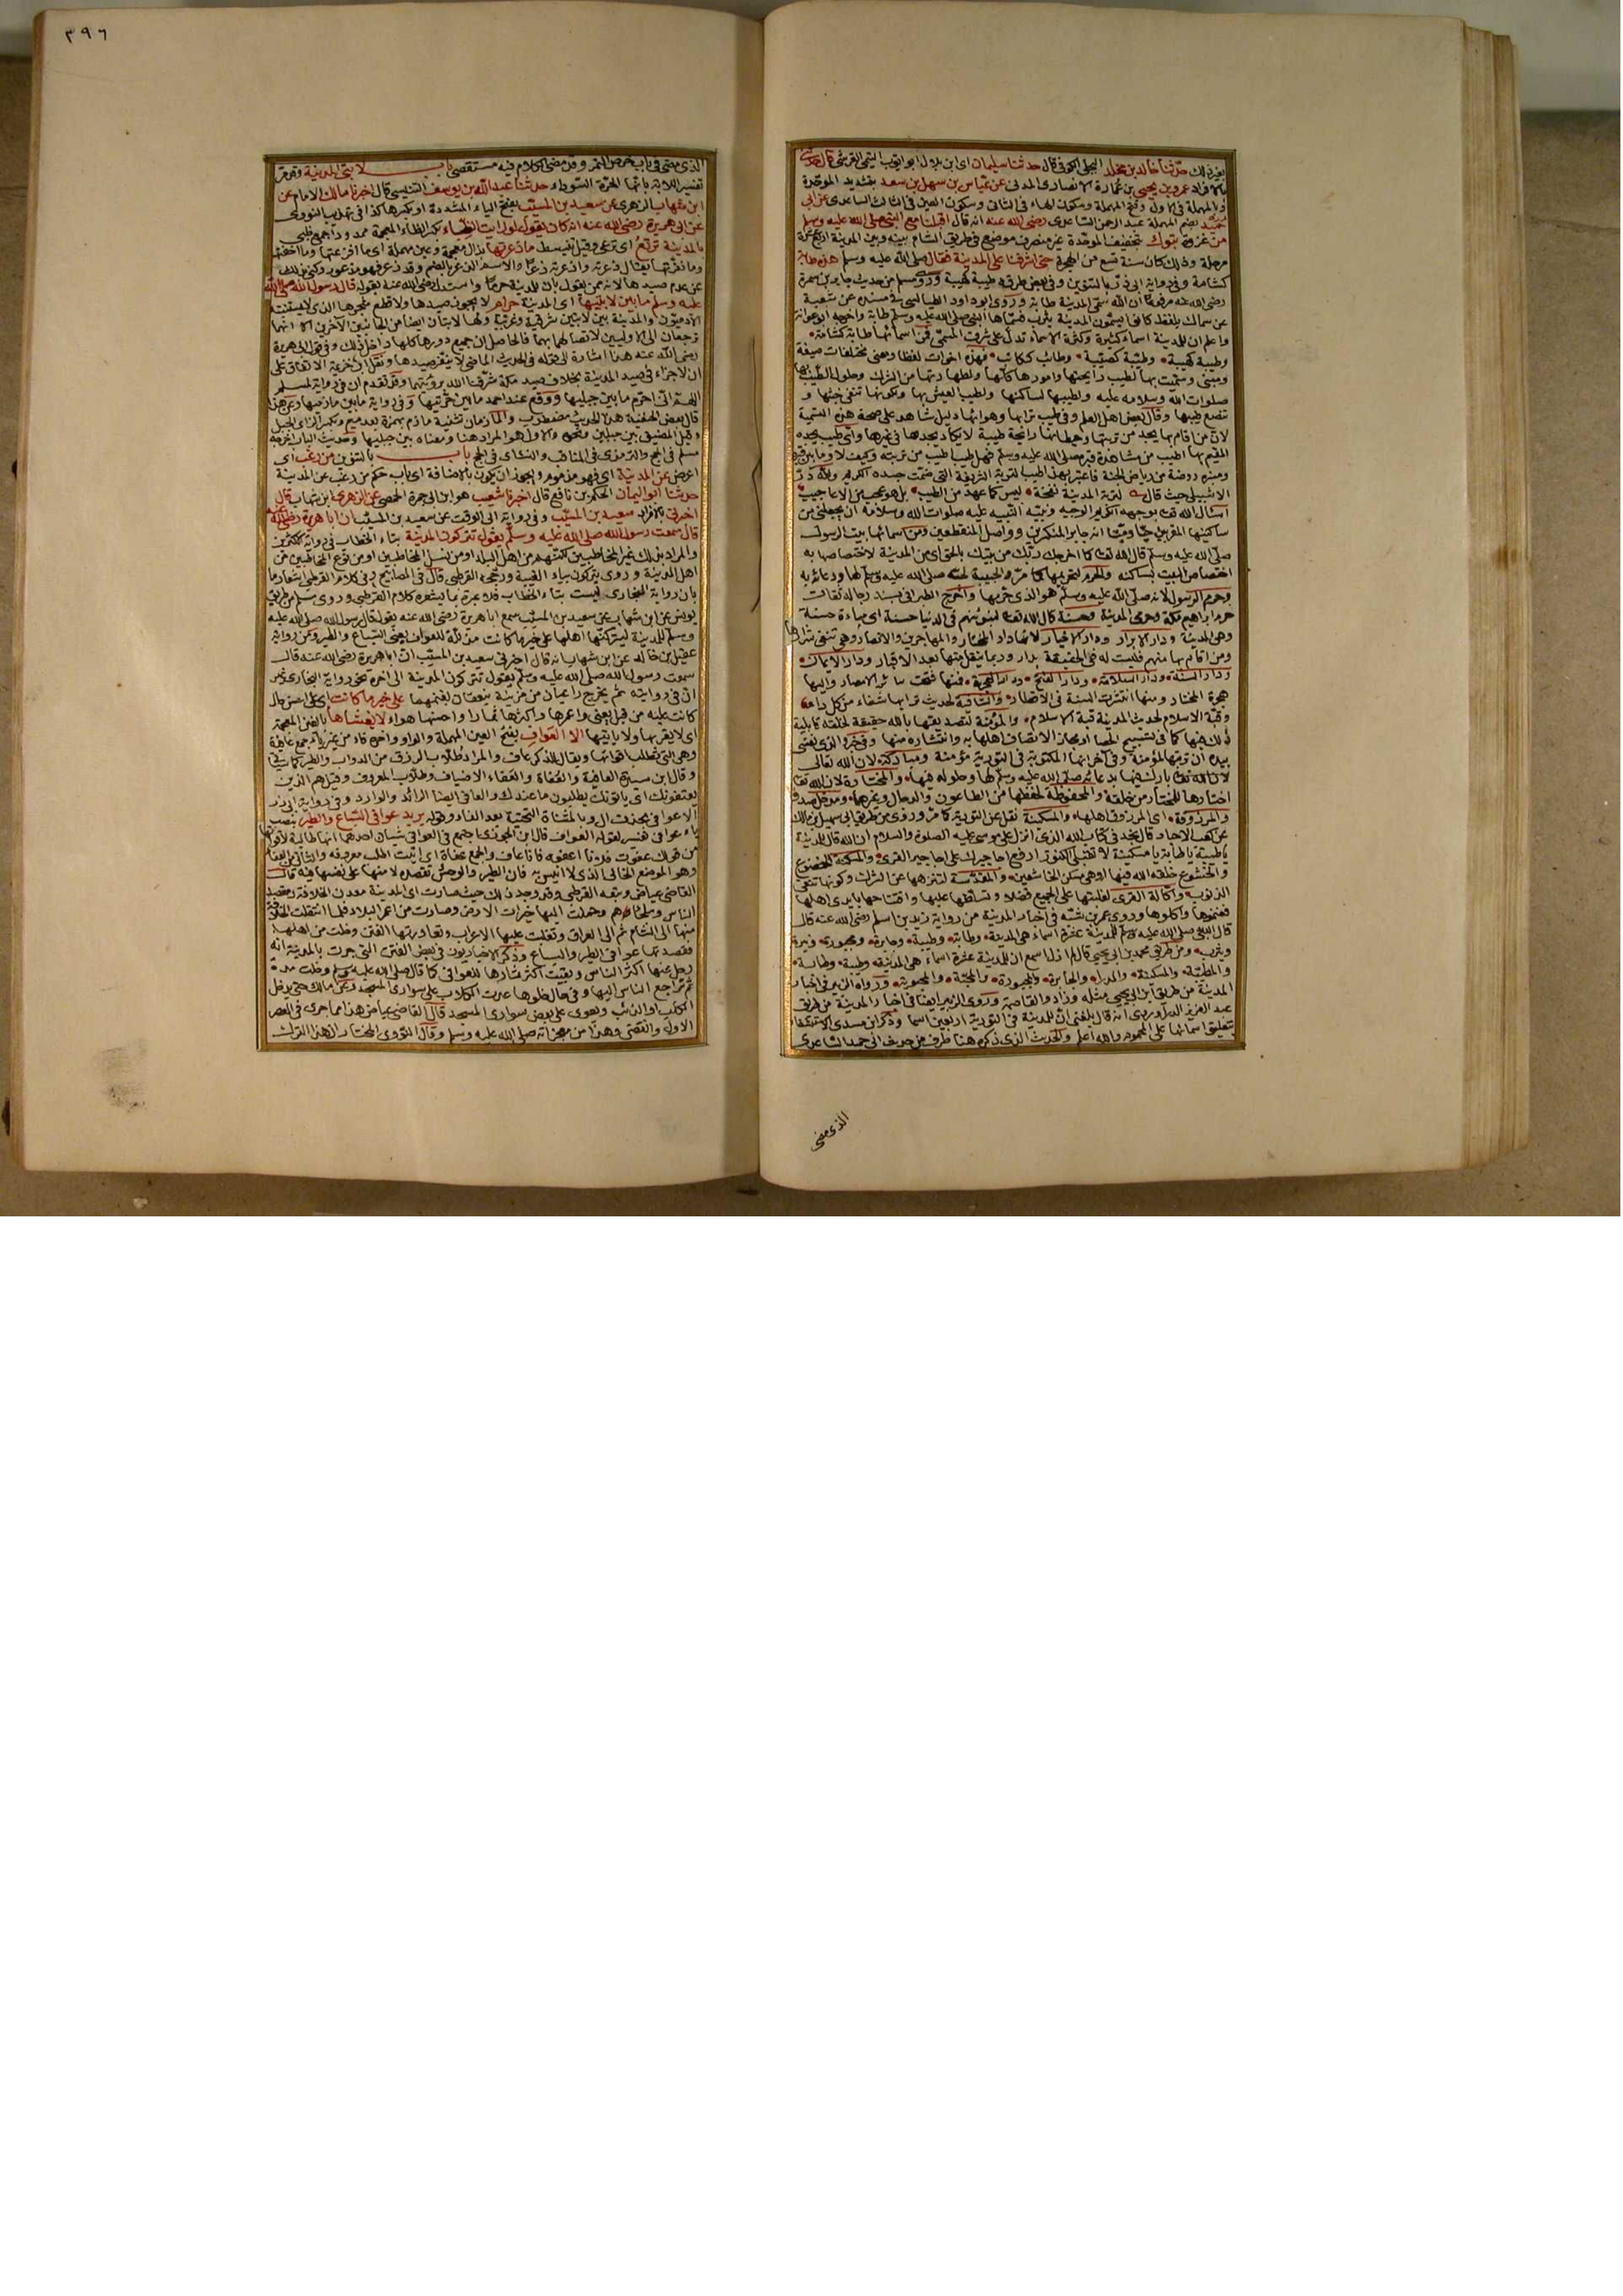 بغير ذلك حدثنا خالد بن مخلد البجلي الكوفي قال حدثنا سليمان اي ابن بلال ابو ايوب التيمي القرشي قال حدثني
بالافراد عمرو بن يحيى بن عمارة الانصاري المدني عن عباس بن سهل بن سعد بتشديد الموحدة
والمهملة في الاول وفتح المهملة وسكون الهاء في الثاني وسكون العين في الثالث الساعدي عن ابي
حميد بضم المهملة عبد الرحمن الساعدي رضي الله عنه انه قال اقبلنا مع النبي صلى الله عليه وسلم
من غزوة تبوك بتخفيف الموحدة غير منصرف موضع في طريق الشام بينه وبين المدينة اربع عشرة
مرحلة وذلك كان سنة تسع من الهجرة حتى اشرفنا على المدينة فقال صلى الله عليه وسلم هذه طابة
كشامة وفي رواية ابي ذر بالتنوين وفي بعض طرقه طيبة كهيبة وروى مسلم من حديث جابر بن سمرة
رضي الله عنه مرفوعا ان الله سمى المدينة طابة وروى ابو داود الطيالسي في مسنده عن شعبة
عن سماك بلفظ كانوا يسمون المدينة يثرب فسماها النبي صلى الله عليه وسلم طابة واخرجه ابو عوانة
واعلم ان للمدينة اسماء كثيرة وكثرة الاسماء تدل على شرف المسمى فمن اسمائها طابة كشامة
وطيبة كهيبة وطيبة كصيبة وطائب ككاتب فهذه اخوات لفظا ومعنى مختلفات صيغة
ومبنى وسميت بها لطيب رائحتها وامورها كلها ولطهارتها من الشرك وحلول الطيب بها
صلوات الله وسلامه عليه ولطيبها لساكنها ولطيب العيش بها ولكونها تنفي خبثها و
تنصع طيبها وقال بعض اهل العلم وفي طيب ترابها وهوائها دليل شاهد على صحة هذه التسمية
لان من اقام بها يجد من تربتها وحيطانها رائحة طيبة لا يكاد يجدها في غيرها واي طيب يجده
المقيم بها اطيب من مشاهدة قبره صلى الله عليه وسلم فهل طيب اطيب من تربته وكيف لا وما بين قبره
ومنبره روضة من رياض الجنة فاعتبر بهذا طيبا لتربة الشريفة التي ضمت جسده الكريم ولله در
الاشبيلي حيث قال لتربة المدينة نفحة ليس كما عهد من الطيب بل هو عجب من الاعاجيب
اسأل الله بوجهه الكريم الوجيه ونبيه النبيه عليه صلوات الله وسلامه ان يجعلني من
ساكنيها المقربين حيا وميتا انه جابر المنكسرين وواصل المنقطعين ومن اسمائها بيت الرسول
صلى الله عليه وسلم قال الله تعالى كما اخرجك ربك من بيتك بالحق اي من المدينة لاختصاصها به
اختصاص البيت بساكنه والحرم لتحريمها كما مر والحبيبة لحبه صلى الله عليه وسلم لها ودعائه به
وحرم الرسول لانه صلى الله عليه وسلم هو الذي حرمها واخرج الطبراني بسند رجاله ثقات
حرم ابراهيم مكة وحرمي المدينة وحسنة قال الله تعالى لنبوئنهم في الدنيا حسنة اي مباءة حسنة
وهي المدينة ودار الابرار ودار الاخيار لانها دار المختار والمهاجرين والانصار وهي تنفي شرارها
ومن اقام بها منهم فليست له في الحقيقة بدار وربما ينقل منها بعد الاقبار ودار الايمان
ودار السنة ودار السلامة ودار الفتح ودار الهجرة فمنها فتحت سائر الامصار واليها
هجرة المختار ومنها انتشرت السنة في الاقطار والشافية لحديث ترابها شفاء من كل داء
وقبة الاسلام لحديث المدينة قبة الاسلام والمؤمنة لتصديقها بالله حقيقة لخلقه قابلية
ذلك فيها كما في تسبيح الحصا او مجاز الاتصاف اهلها به وانتشاره منها وفي خبر والذي نفسي
بيده ان تربتها لمؤمنة وفي آخر انها المكتوبة في التورية مؤمنة ومباركة لان الله تعالى
بارك فيها بدعائه صلى الله عليه وسلم لها وحلوله فيها والمختارة لان الله تعالى
اختارها للمختار من خلقه والمحفوظة لحفظها من الطاعون والدجال وغيرهما ومدخل صدق
والمرزوقة اي المرزوق اهلها والمسكينة نقل عن التورية كما مر وروي من طريق ابي سهيل بن مالك
عن كعب الاحبار قال نجد في كتاب الله الذي انزل على موسى عليه الصلوة والسلام ان الله قال للمدينة
يا طيبة يا طابة يا مسكينة لا تقبلي الكنوز ارفع اجاجيرك على اجاجير القرى والمسكنة الخضوع
والخشوع خلقه الله فيها او هي مسكن الخاشعين والمقدسة لتنزهها عن الشرك وكونها تنفي
الذنوب واكالة القرى لغلبتها على الجميع فضلا وتسلطها عليها وافتتاحها بايدي اهلها
فغنموها واكلوها وروى عمر بن شبة في اخبار المدينة من رواية زيد بن اسلم رضي الله عنه قال
قال النبي صلى الله عليه وسلم للمدينة عشرة اسماء هي المدينة وطابة وطيبة وجابرة ومجبورة
ويثرب ومن طريق محمد بن ابي يحيى قال لم ازل اسمع ان للمدينة عشرة اسماء هي المدينة وطيبة وطابة
والمطيبة والمسكينة والجابرة والمجبورة والمحبة والمحبوبة ورواه الزبير في اخبار
المدينة من طريق ابن ابي يحيى مثله وزاد والقاصمة وروى الزبير ايضا في اخبار المدينة من طريق
عبد العزيز الدراوردي انه قال بلغني ان للمدينة في التورية اربعين اسما
على المحموم والله اعلم والحديث الذي ذكره هنا طرف من حديث ابي حميد الساعدي
الذي مضى
٣٩٦
الذي مضى في باب خرص التمر وقد مضى الكلام فيه مستقصى باب لابتي المدينة وقد مر
تفسير اللابة بانها الحرة السوداء حدثنا عبد الله بن يوسف التنيسي قال اخبرنا مالك الامام عن
ابن شهاب الزهري عن سعيد بن المسيب بفتح الياء المشددة او بكسرها كذا في تهذيب النووي
عن ابي هريرة رضي الله عنه انه كان يقول لو رايت الظباء بكسر الظاء المعجمة ممدودا جمع ظبي
بالمدينة ترتع اي ترعى وقيل تنبسط ما ذعرتها بذال معجمة وعين مهملة اي ما افزعتها وما اخفتها
وما نفرتها يقال ذعرته واذعرته ذعرا والاسم الذعر بالضم وقد ذعر فهو مذعور وكنى بذلك
عن عدم صيدها لانه ممن يقول بان للمدينة حرما واستدل رضي الله عنه بقوله قال رسول الله صلى الله
عليه وسلم ما بين لابتيها اي المدينة حرام لا يجوز صيدها ولا قطع شجرها الذي لا يستنبته
الآدميون والمدينة بين لابتين شرقية وغربية ولها لابتان ايضا من الجانبين الآخرين الا انهما
ترجعان الى الاوليين لاتصالهما بهما فالحاصل ان جميع دورها كلها داخل ذلك وفي قول ابي هريرة
رضي الله عنه هذا اشارة الى قوله في الحديث الماضي لا ينفر صيدها ونقل ابن خزيمة الاتفاق على
ان لا جزاء في صيد المدينة بخلاف صيد مكة شرفنا الله برؤيتهما وقد تقدم ان في رواية لمسلم
اللهم اني احرم ما بين جبليها ووقع عند احمد ما بين حرتيها وفي رواية ما بين مازميها وعن هذا
قال بعض الحنفية هذا الحديث مضطرب والمازمان تثنية مازم بهمزة بعد ميم وبكسر الزاي الجبل
وقيل المضيق بين جبلين ونحوه والاول هو المراد هنا ومعناه بين جبليها وحديث الباب اخرجه
مسلم في الحج والترمذي في المناقب والنسائي في الحج باب بالتنوين من رغب اي
اعرض عن المدينة اي فهو مذموم ويجوز ان يكون بالاضافة اي باب حكم من رغب عن المدينة
حدثنا ابو اليمان الحكم بن نافع قال اخبرنا شعيب هو ابن ابي حمزة الحمصي عن الزهري ابن شهاب قال
اخبرني بالافراد سعيد بن المسيب وفي رواية ابي الوقت عن سعيد بن المسيب ان ابا هريرة رضي الله عنه
قال سمعت رسول الله صلى الله عليه وسلم يقول تتركون المدينة بتاء الخطاب في رواية الاكثرين
والمراد بذلك غير المخاطبين لكنهم من اهل البلد او من نسل المخاطبين او من نوع المخاطبين من
اهل المدينة وروي يتركون بياء الغيبة ورجحه القرطبي قال في المصابيح وفي كلام القرطبي اشعار ما
بان رواية البخاري ليست بتاء الخطاب فلا عبرة بما يشعره كلام القرطبي وروى مسلم من طريق
يونس عن ابن شهاب عن سعيد بن المسيب سمع ابا هريرة رضي الله عنه يقول قال رسول الله صلى الله عليه
وسلم للمدينة ليتركنها اهلها على خير ما كانت مذللة للعوافي يعني السباع والطير ومن رواية
عقيل بن خالد عن ابن شهاب انه قال اخبرني سعيد بن المسيب ان ابا هريرة رضي الله عنه قال
سمعت رسول الله صلى الله عليه وسلم يقول تتركون المدينة الى آخره نحو رواية البخاري غير
ان في روايته ثم يخرج راعيان من مزينة ينعقان بغنمهما على خير ما كانت اي على احسن حال
كانت عليه من قبل يعني واعمرها واكثرها ثمارا واحسنها هواء لا يغشاها بالغين المعجمة
اي لا يقربها ولا ياتيها الا العواف بفتح العين المهملة والواو وآخره فاء من غير ياء جمع عافية
وهي التي تطلب اقواتها ويقال للذكر عاف والمراد طلاب الرزق من الدواب والطير
وقال ابن سيدة العافية والعفاة والعفاء الاضياف وطلاب المعروف وقيل هم الذين
يعتفونك اي ياتونك يطلبون ما عندك والعافي ايضا الرائد والوارد وفي رواية ابي ذر
الا عوافي بحذف ال وبالمثناة التحتية بعد الفاء وقوله يريد عوافي السباع والطير بنصب
ياء عوافي تفسير لقوله العواف قال ابن الجوزي اجتمع في العوافي شيئان احدهما انها طالبة لاقواتها
من قولك عفوت فلانا اعفوه فانا عاف والجمع عفاة اي اتيت اطلب معروفه والثاني من العفاء
وهو الموضع الخالي الذي لا انيس به فان الطير والوحش تقصده لامنها على نفسها فيه قال
القاضي عياض وتبعه القرطبي وقد وجد ذلك حيث صارت اي المدينة معدن الخلافة ومقصد
الناس وملجاهم وحملت اليها خيرات الارض وصارت من اعمر البلاد فلما انتقلت الخلافة
منها الى الشام ثم الى العراق وتغلبت عليها الاعراب وتعاورتها الفتن وخلت من اهلها
فقصدتها عوافي الطير والسباع وذكر الاخباريون في بعض الفتن التي جرت بالمدينة انه
رحل عنها اكثر الناس وبقيت اكثر ثمارها للعوافي كما قال صلى الله عليه وسلم وخلت مدة
ثم تراجع الناس اليها وفي حال خلوها عدت الكلاب على سواري المسجد وعن مالك حتى يدخل
الكلب او الذئب ويعوي على بعض سواري المسجد قال القاضي عياض هذا مما جرى في العصر
الاول وانقضى وهذا من معجزاته صلى الله عليه وسلم وقال النووي المختار ان هذا الترك